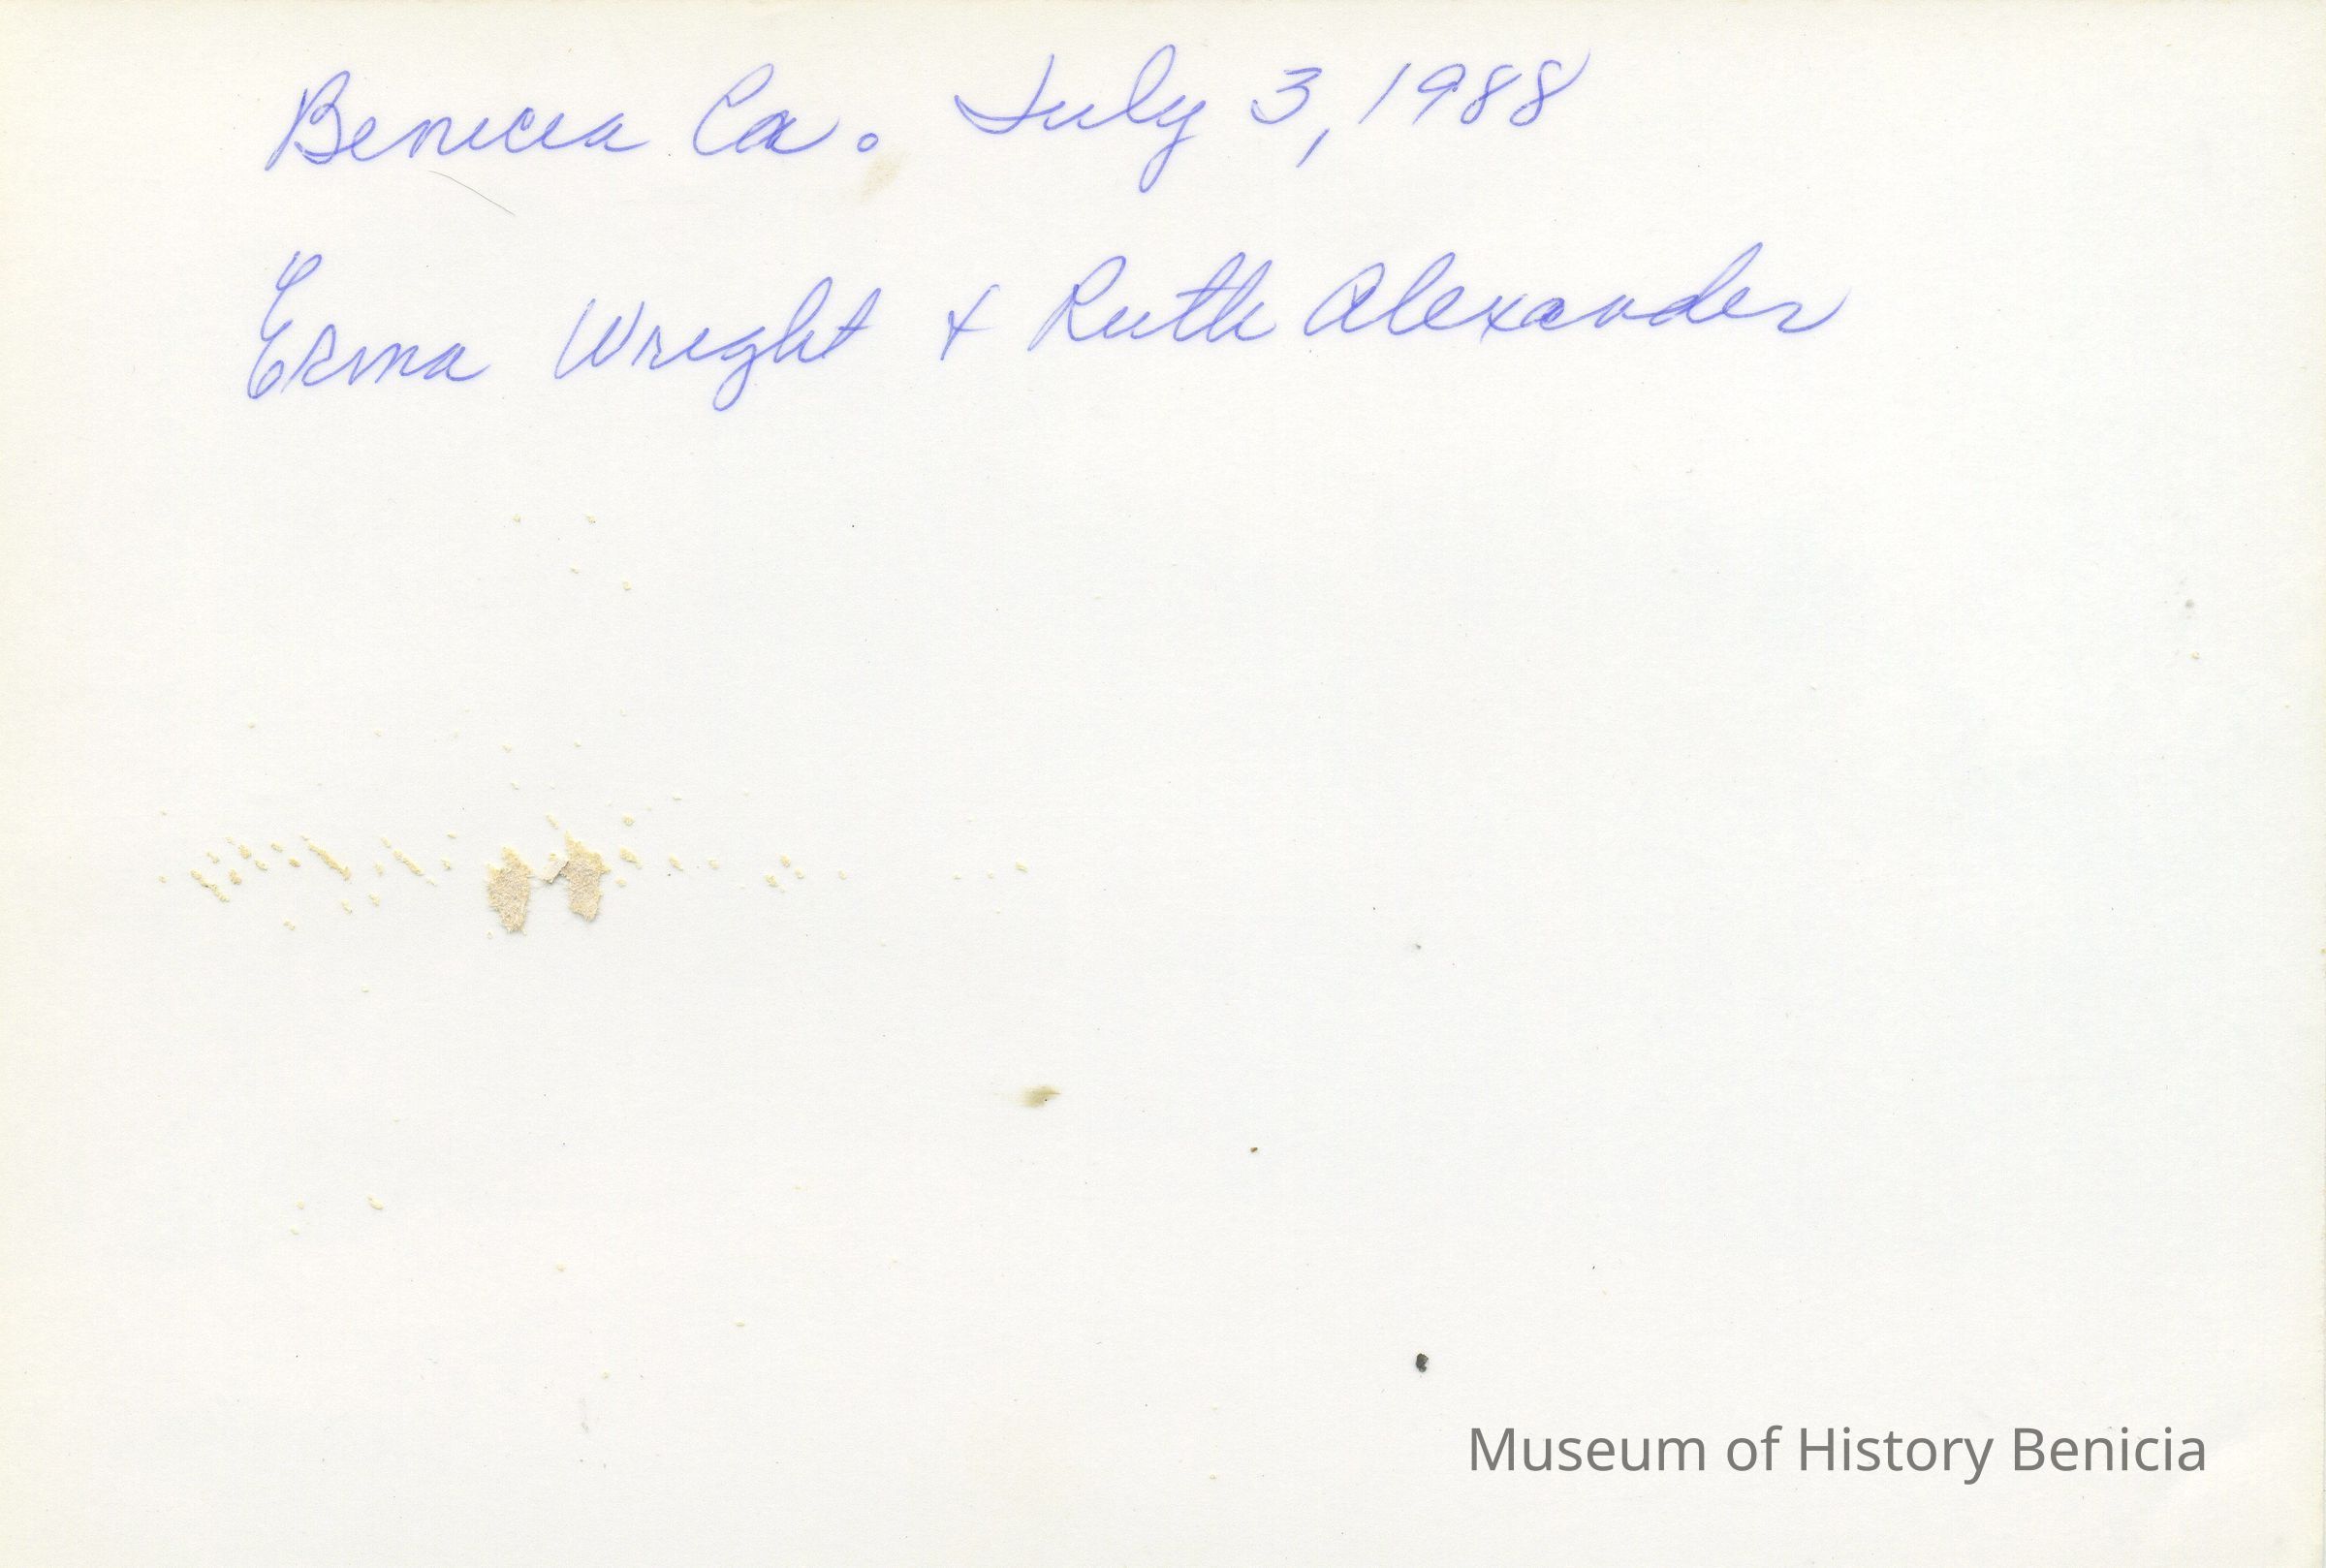 Benicia Ca. July 3, 1988
Erma Wright & Ruth Alexander
Museum of History Benicia